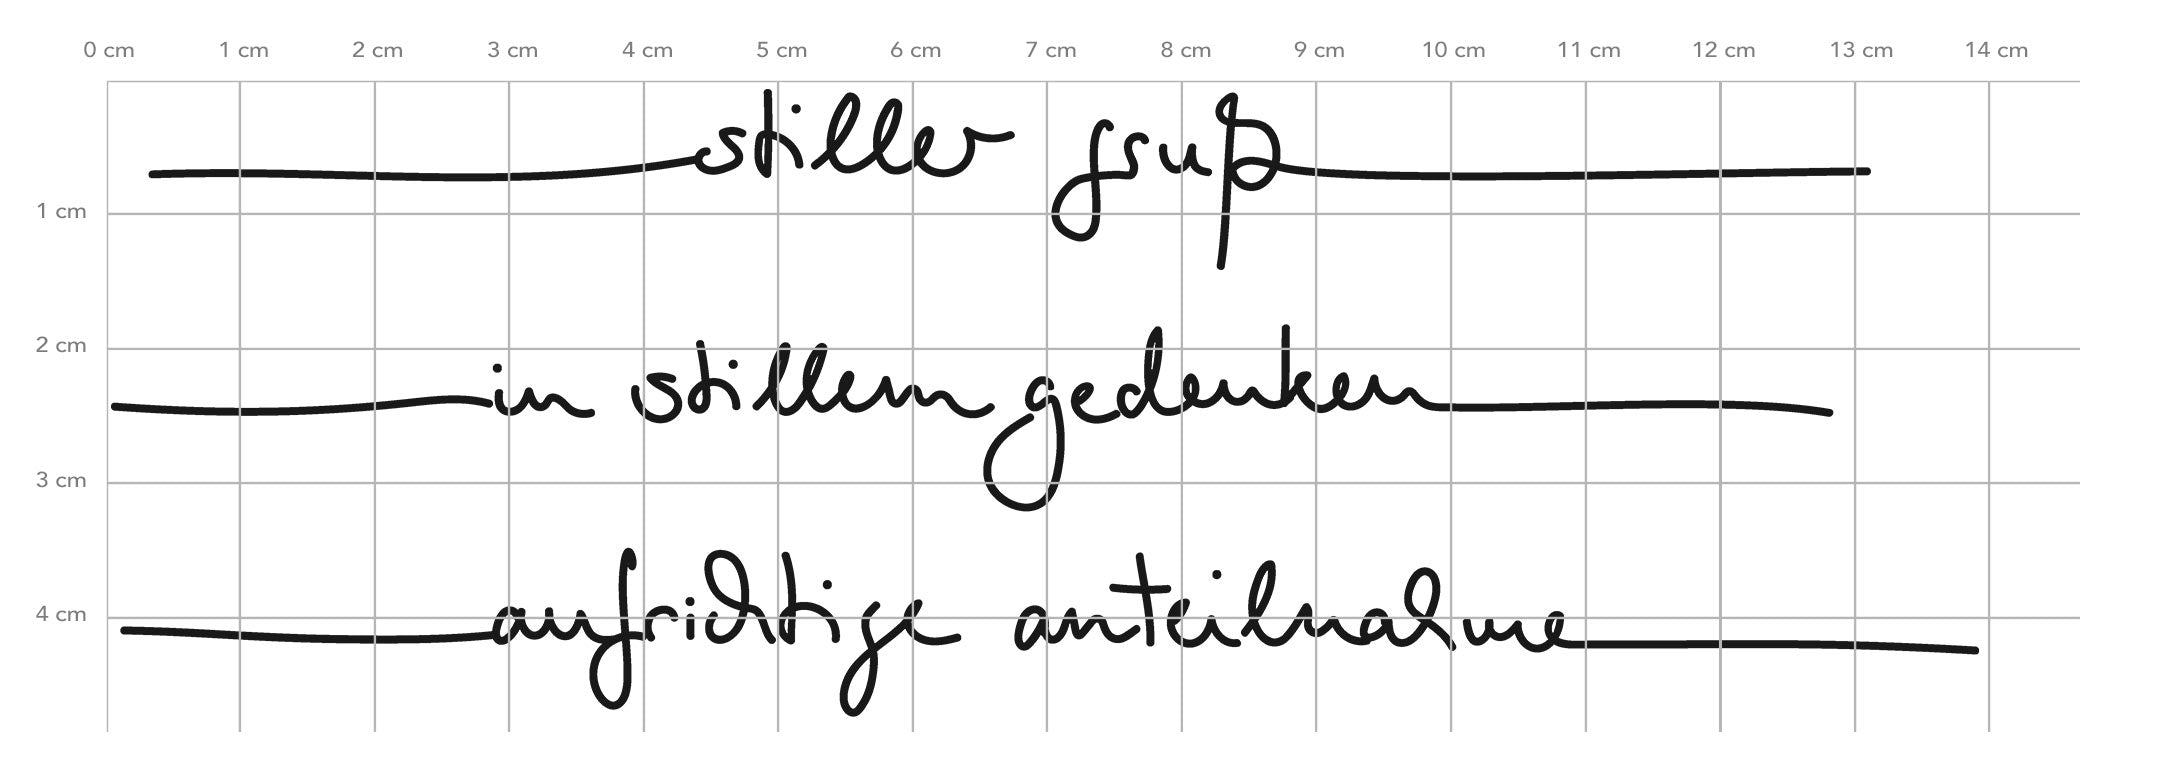 0 cm 1 cm 2 cm 3 cm 4 cm 5 cm 6 cm 7 cm 8 cm 9 cm 10 cm 11 cm 12 cm 13 cm 14 cm
stiller gruß
1 cm
2 cm
in stillem gedenken
3 cm
4 cm
aufrichtige anteilnahme